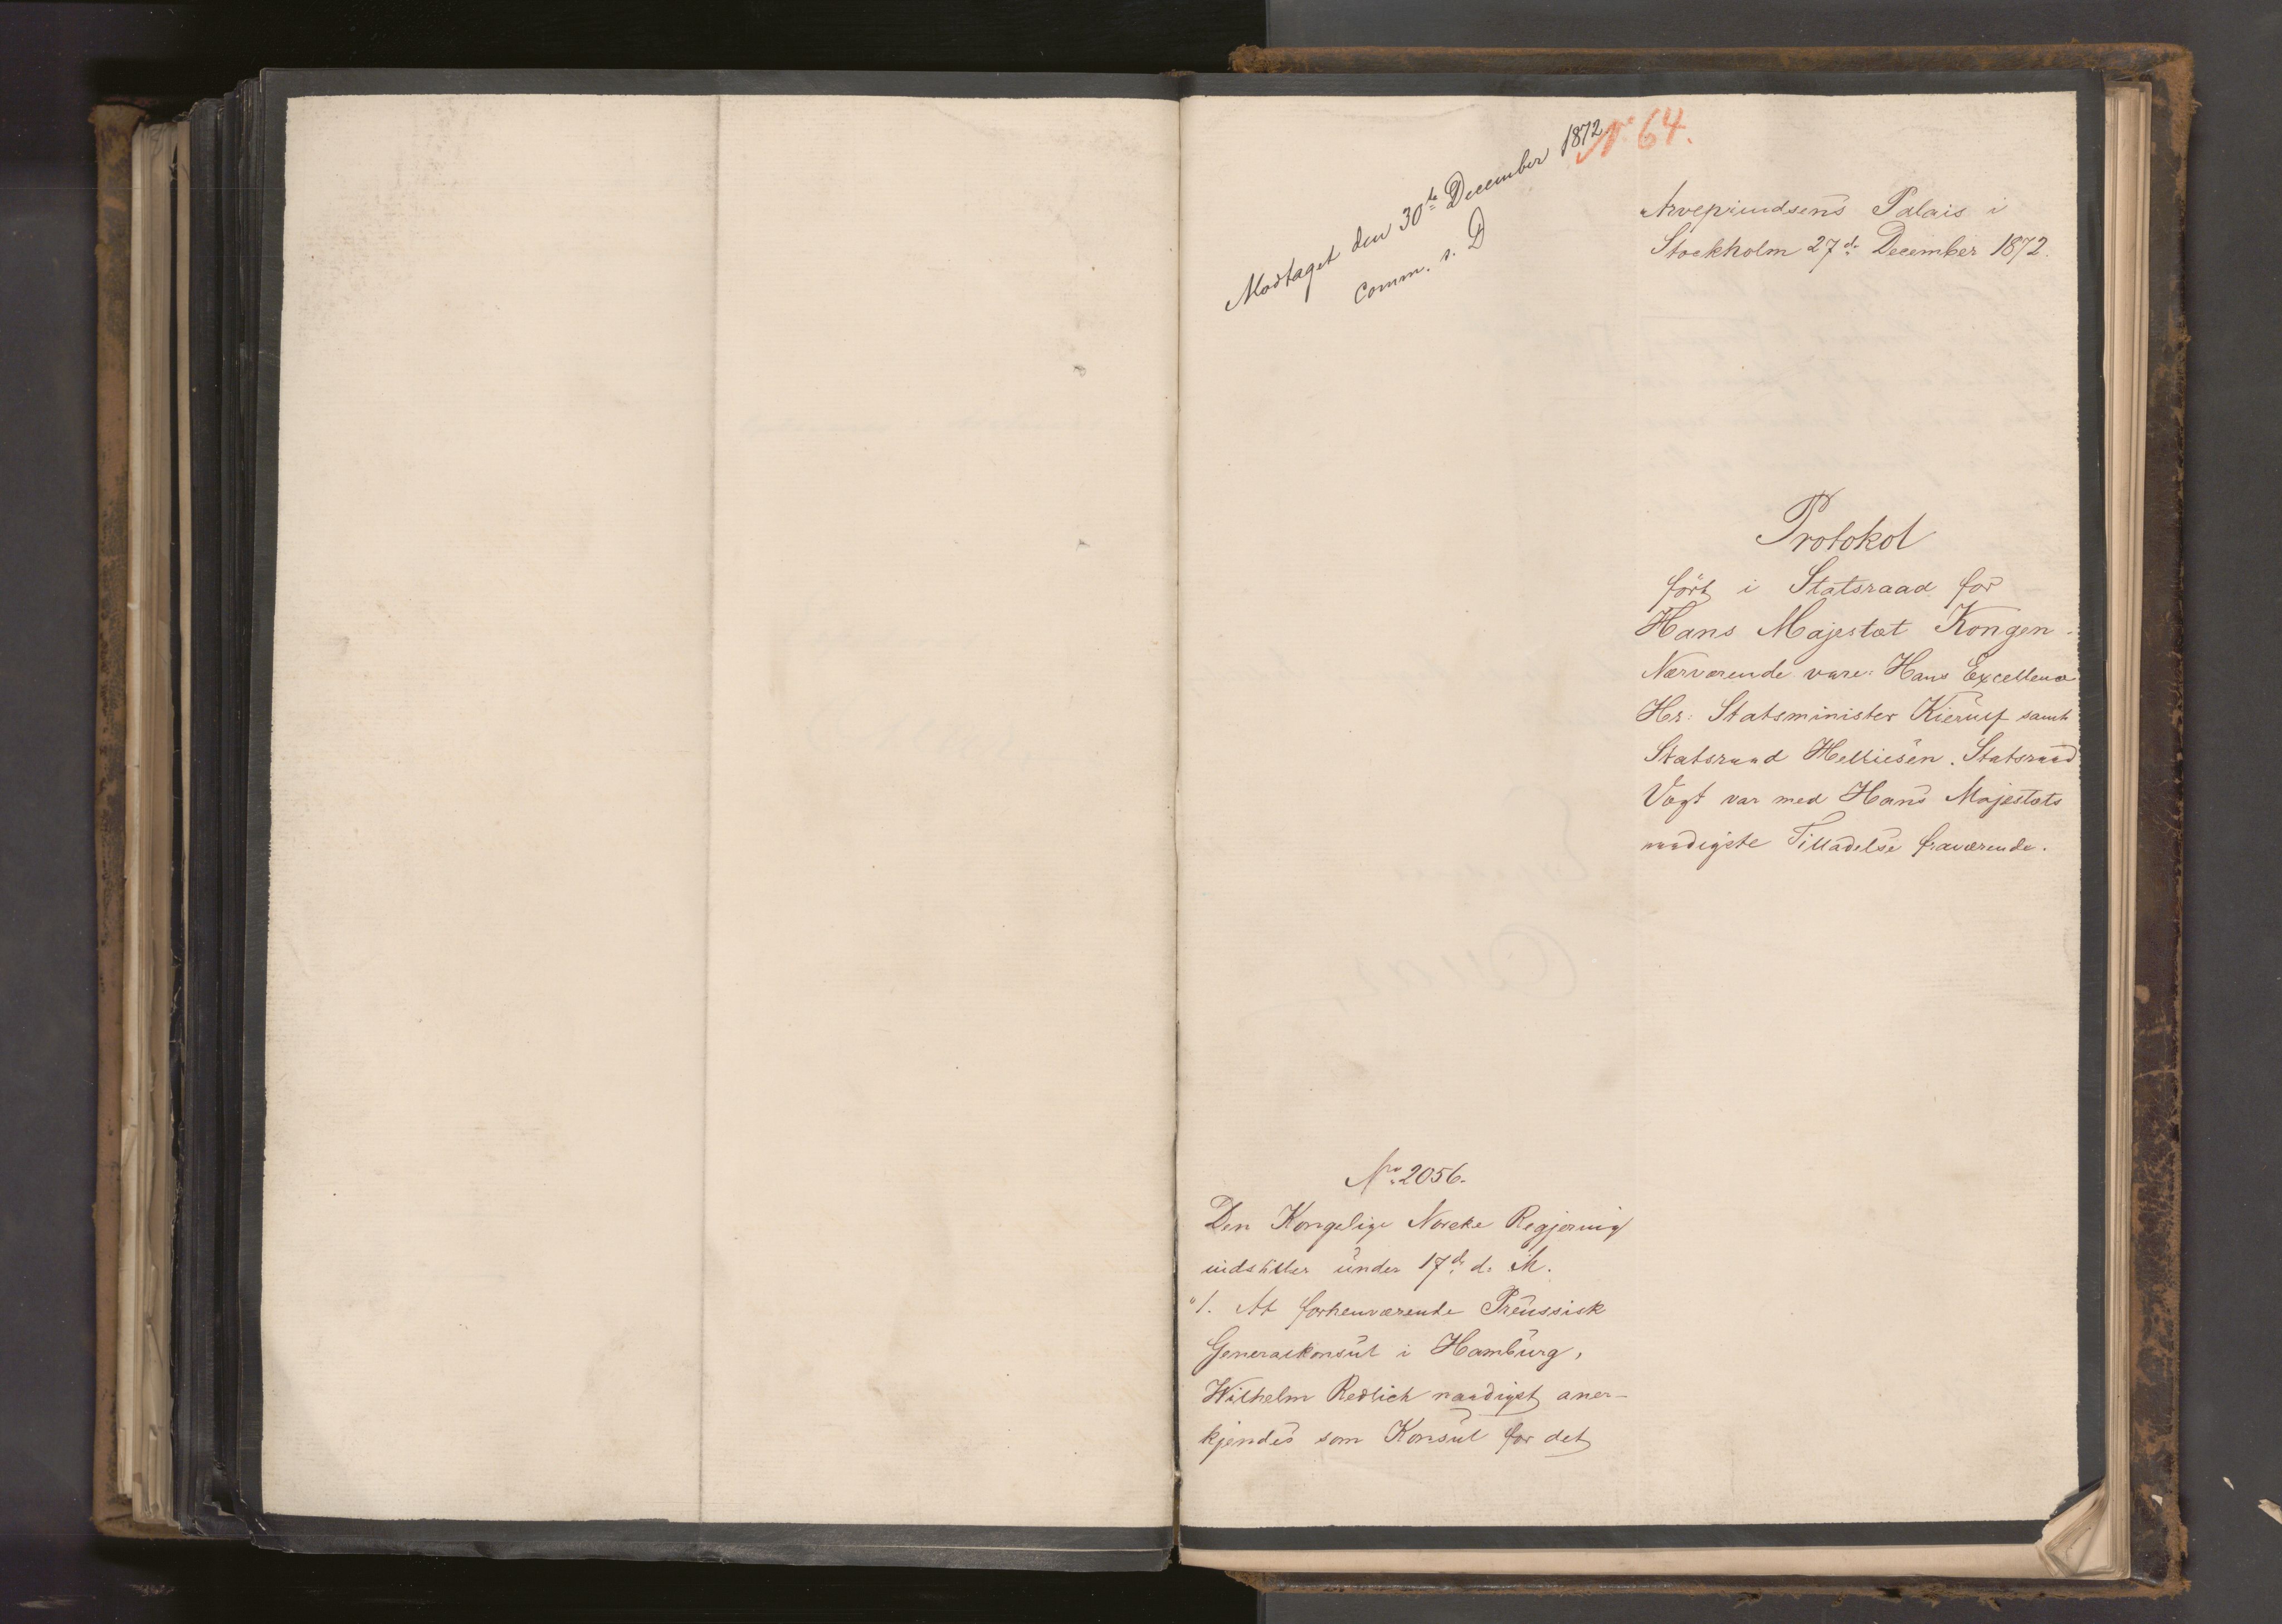 N° 64.
Modtaget den 30te December 1872
Comm. s. D
Arveprindsens Palais i
Stockholm 27de December 1872.
Protokol
ført i Statsraad for
Hans Majestæt Kongen.
Nærværende vare: Hans Excellence
Hr: Statsminister Kierulf samt
Statsraad Helliesen. Statsraad
Vogt var med Hans Majestæts
naadigste Tilladelse fraværende.
No 2056.
Den Kongelige Norske Regjering
indstiller under 17de d. M.
"1. At forhenværende Preussisk
Generalkonsul i Hamburg,
Wilhelm Redlich naadigst aner-
kjendes som Konsul for det